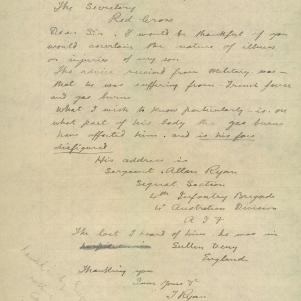 The Secretary
Red Cross
Dear Sir, I would be thankful if you
would ascertain the nature of illness
or injuries of my son.
The advice received from Military was—
that he was suffering from Trench fever
and gas burns
What I wish to know particularly is, on
what part of his body the gas burns
have affected him, and is his face
disfigured.
His address is
Sergeant Allan Ryan
Signal Section
4th Infantry Brigade
4th Australian Division
A I F
The last I heard of him, he was in
Sutton Veny
England
Thanking you
I am Yours
T Ryan